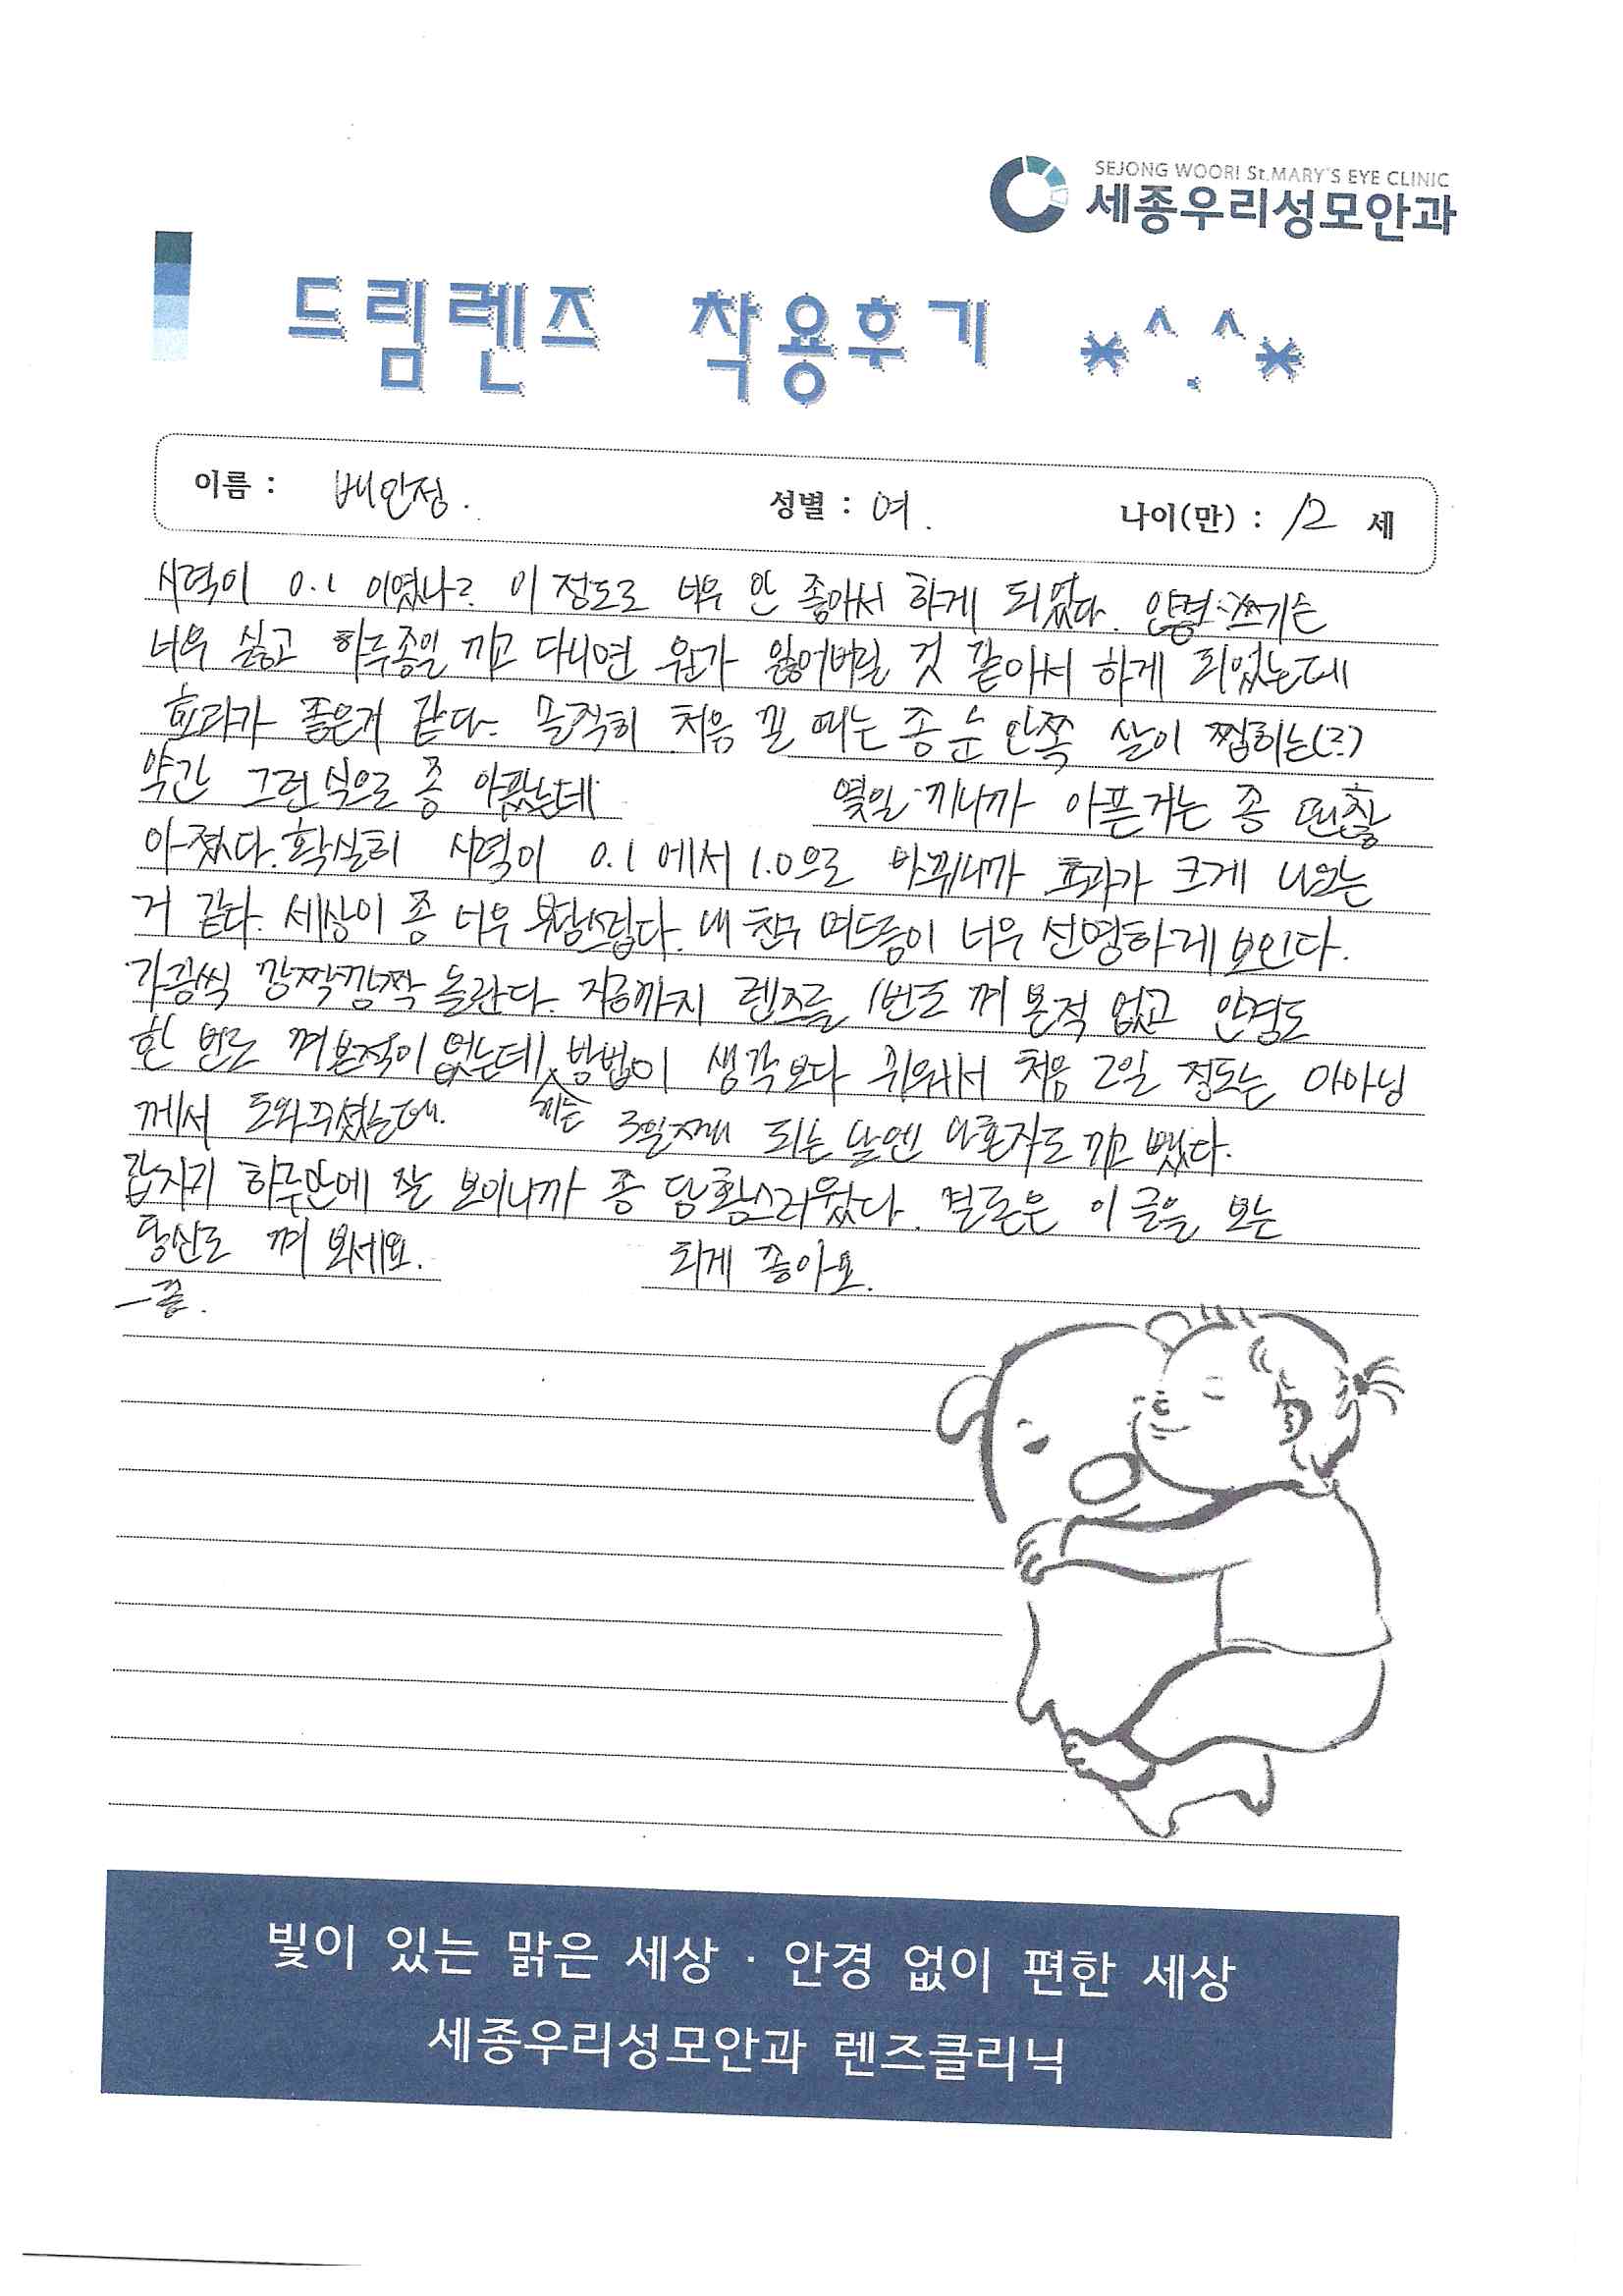 SEJONG WOORI St.MARY'S EYE CLINIC
세종우리성모안과
드림렌즈 착용후기 *^.^*
이름 : 배인정. 성별 : 여. 나이(만) : 12 세
시력이 0.1 이였나? 이 정도로 너무 안 좋아서 하게 되었다. 안경 쓰기는
너무 싫고 하루종일 끼고 다니면 뭔가 잃어버릴 것 같아서 하게 되었는데
효과가 좋은거 같다. 솔직히 처음 낄 때는 좀 눈 안쪽 살이 찝히는(?)
약간 그런 식으로 좀 아팠는데 몇일 끼니까 아픈거는 좀 괜찮
아졌다. 확실히 시력이 0.1 에서 1.0으로 바뀌니까 효과가 크게 나오는
거 같다. 세상이 좀 너무 부담스럽다. 내 친구 여드름이 너무 선명하게 보인다.
가끔씩 깜짝깜짝 놀란다. 지금까지 렌즈를 1번도 껴 본적 없고 안경도
한 번도 껴본적이 없는데 끼는 방법이 생각보다 쉬워서 처음 2일 정도는 어머님
께서 도와주셨는데. 3일째 되는 날엔 나혼자도 끼고 뺐다.
갑자기 하루만에 잘 보이니까 좀 당황스러웠다. 결론은 이 글을 보는
당신도 껴 보세요. 되게 좋아요.
-끝.
빛이 있는 맑은 세상 · 안경 없이 편한 세상
세종우리성모안과 렌즈클리닉